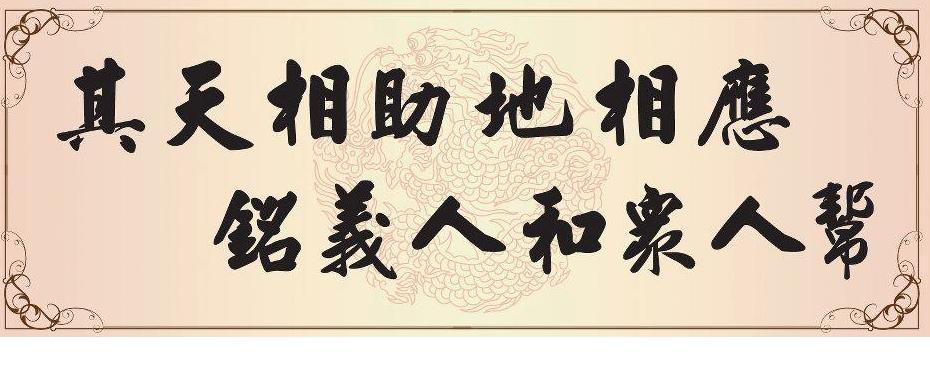 其天相助地相應
銘義人和眾人幫